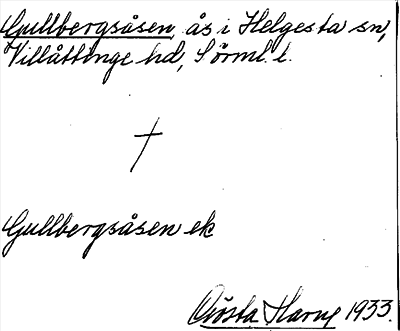 Gullbergsåsen, ås i Helgesta sn,
Villåttinge hd, Sörml. l.
†
Gullbergsåsen ek
Gösta Harug 1933.